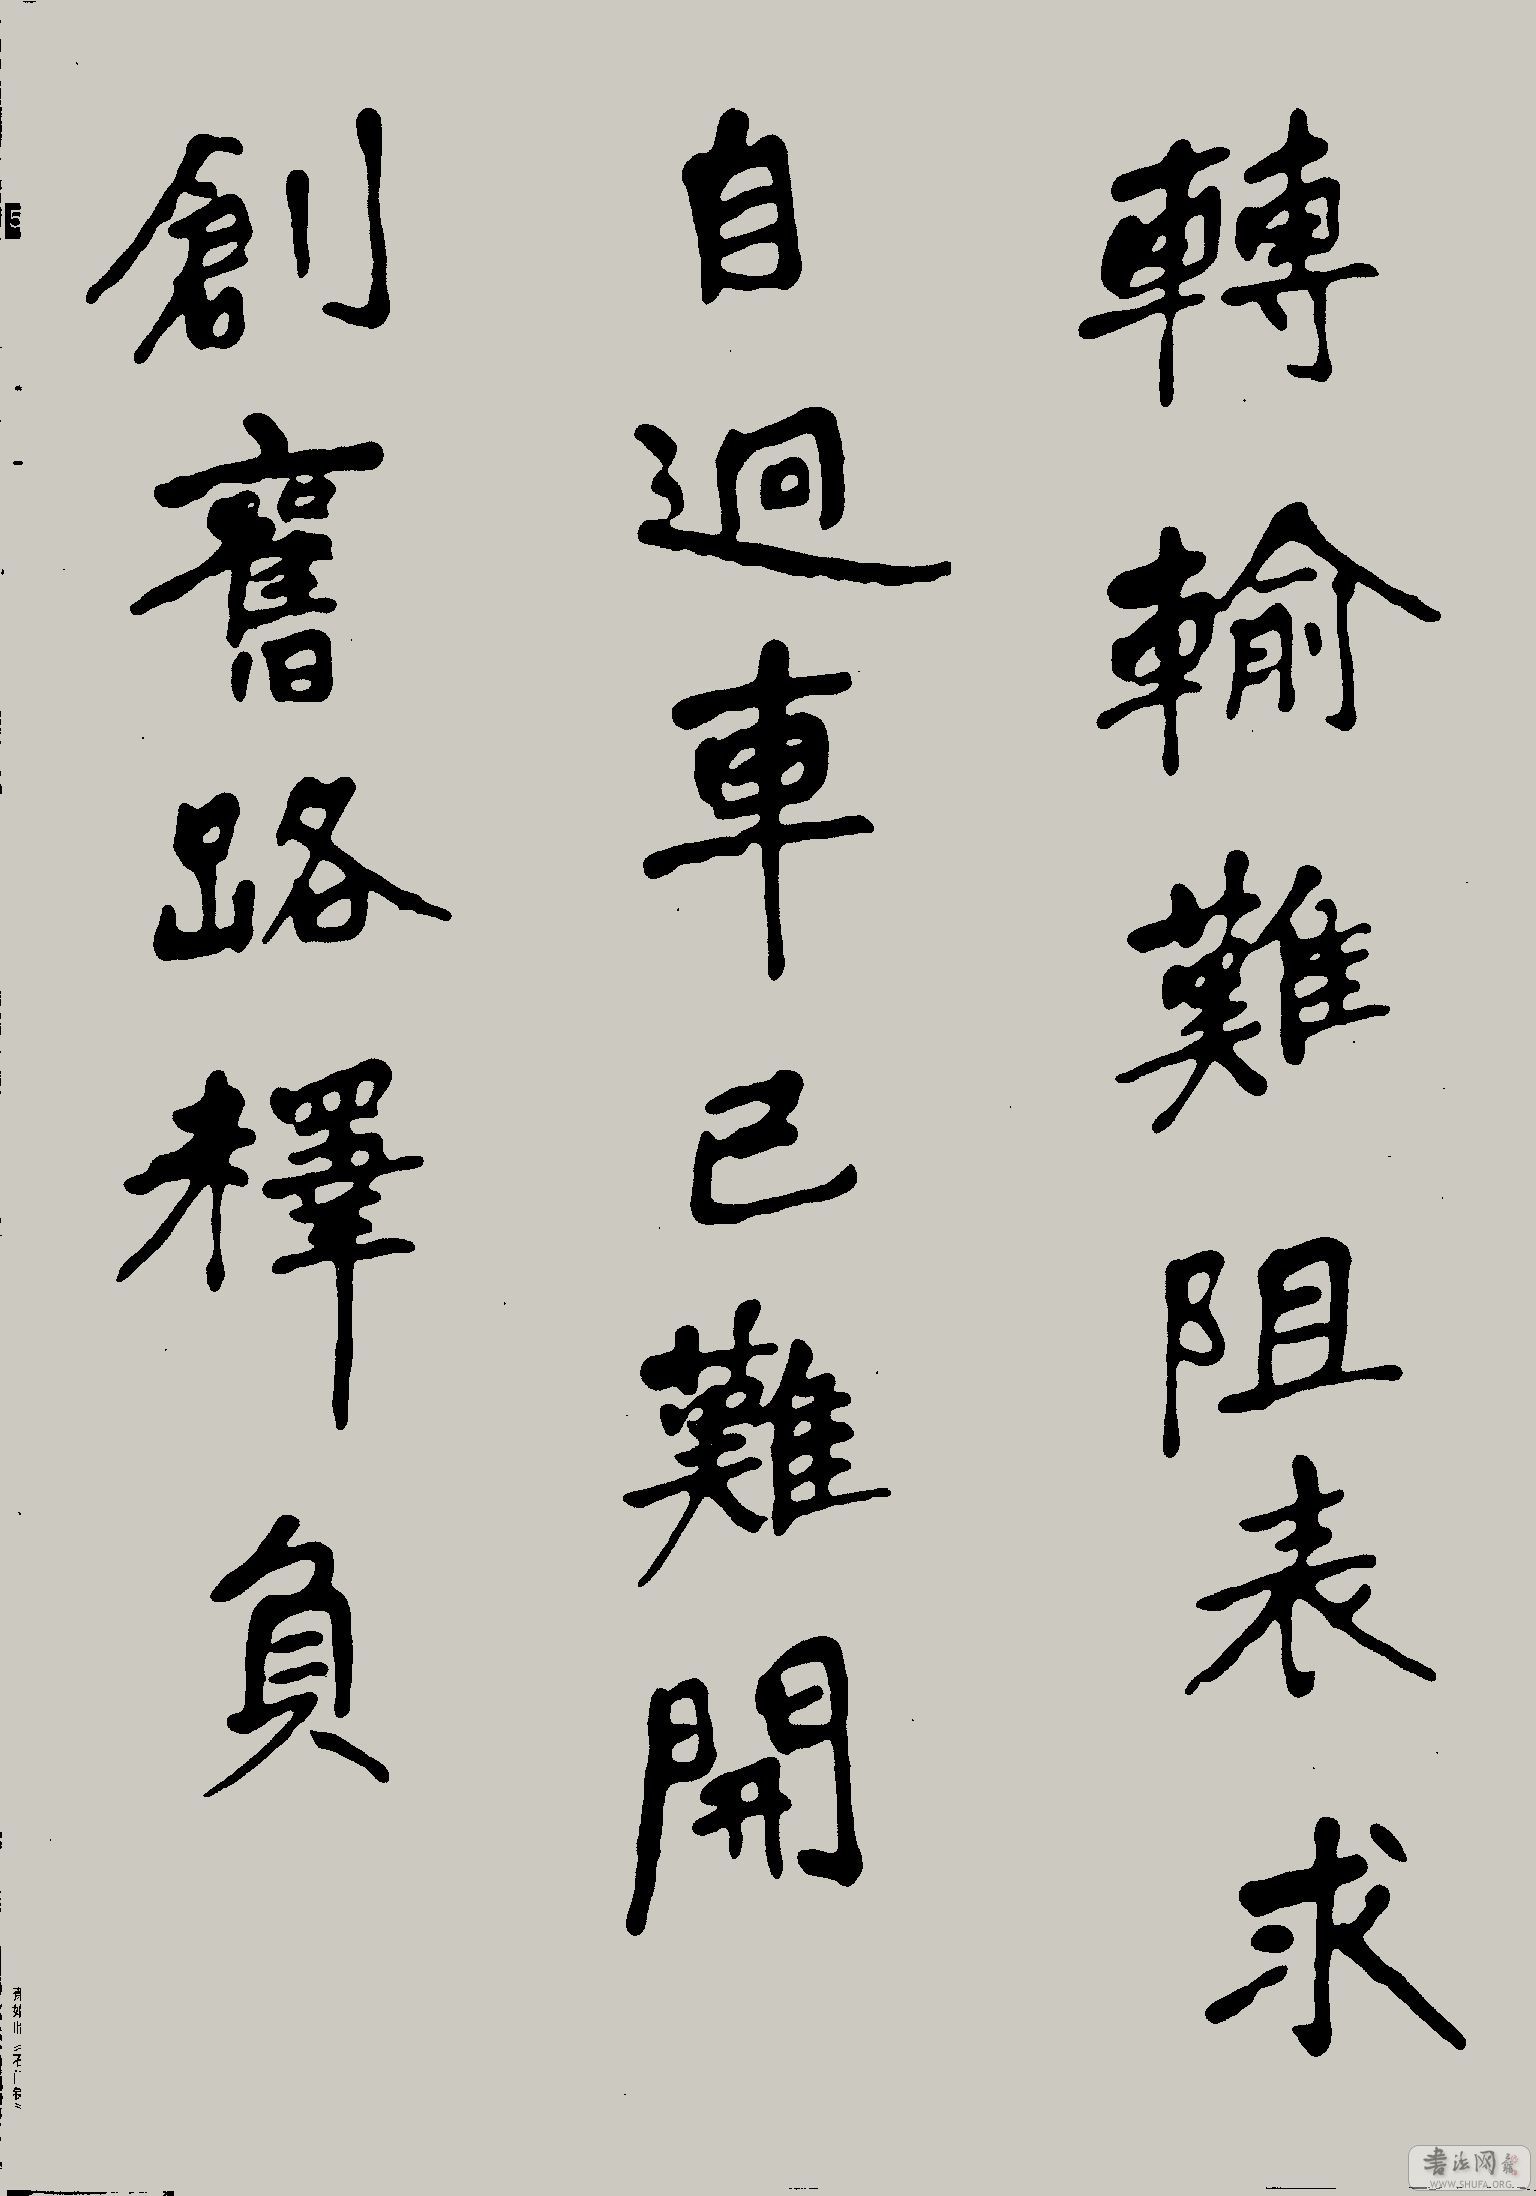 轉輸難阻表求
自迥車已難開
創舊路釋負
书法网
WWW.SHUFA.ORG